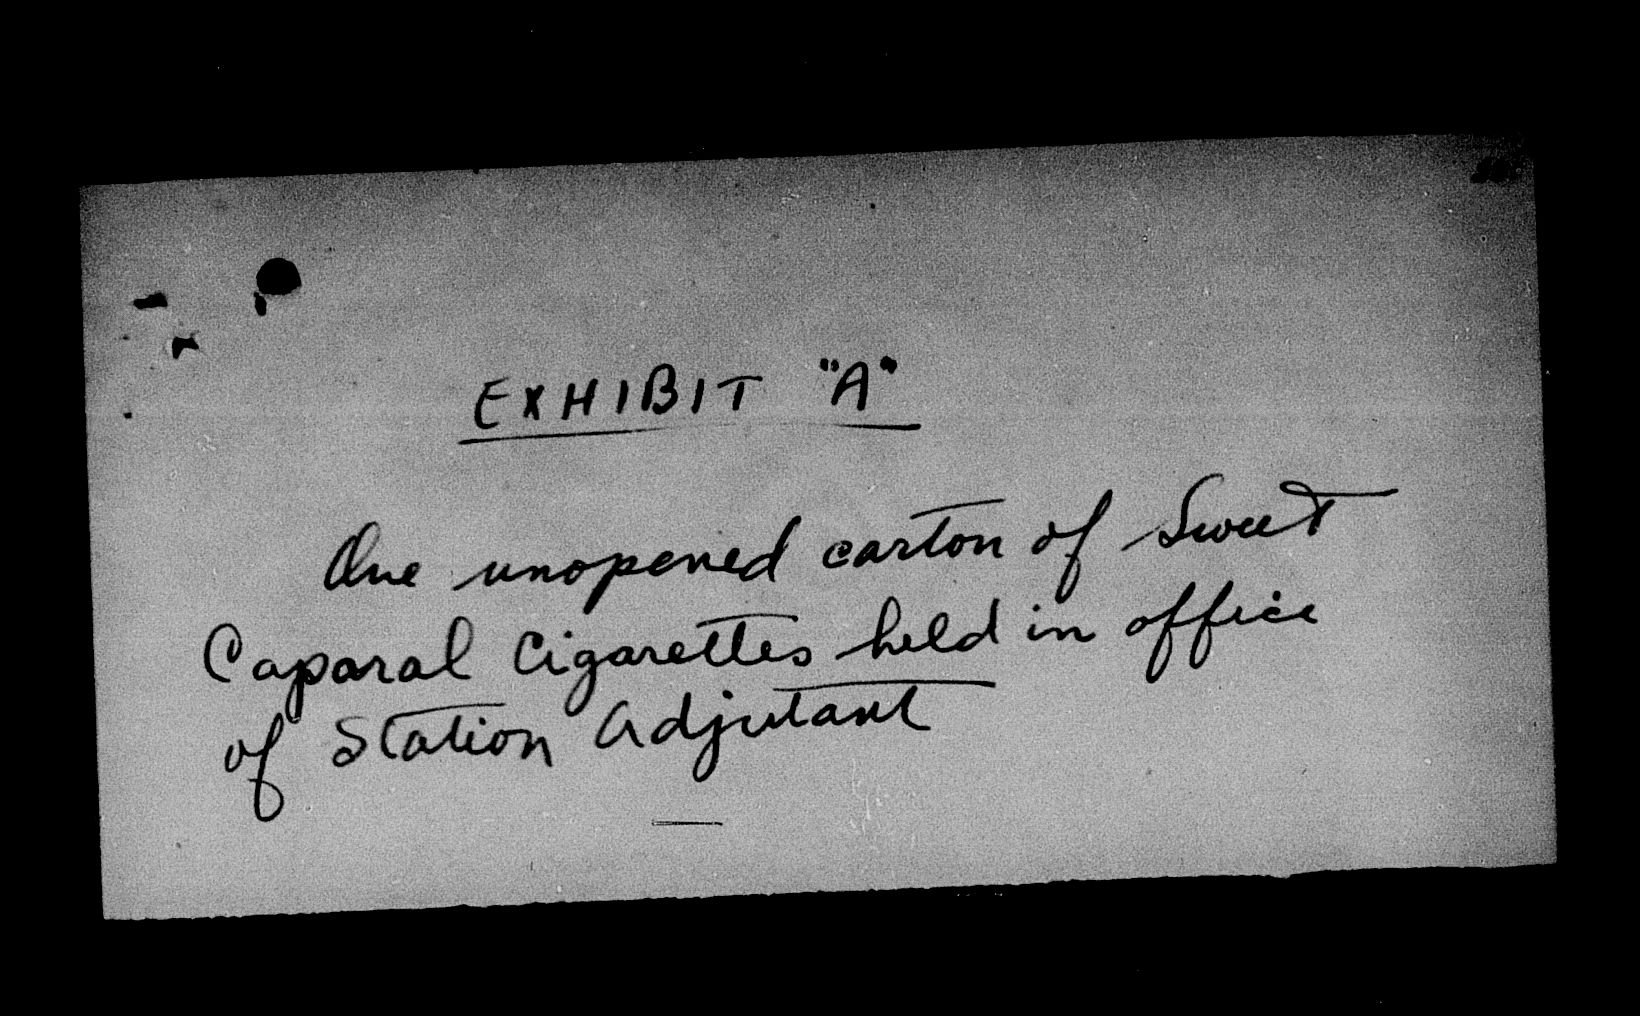 EXHIBIT "A"
One unopened carton of Sweet
Caparal Cigarettes held in office
of Station Adjutant